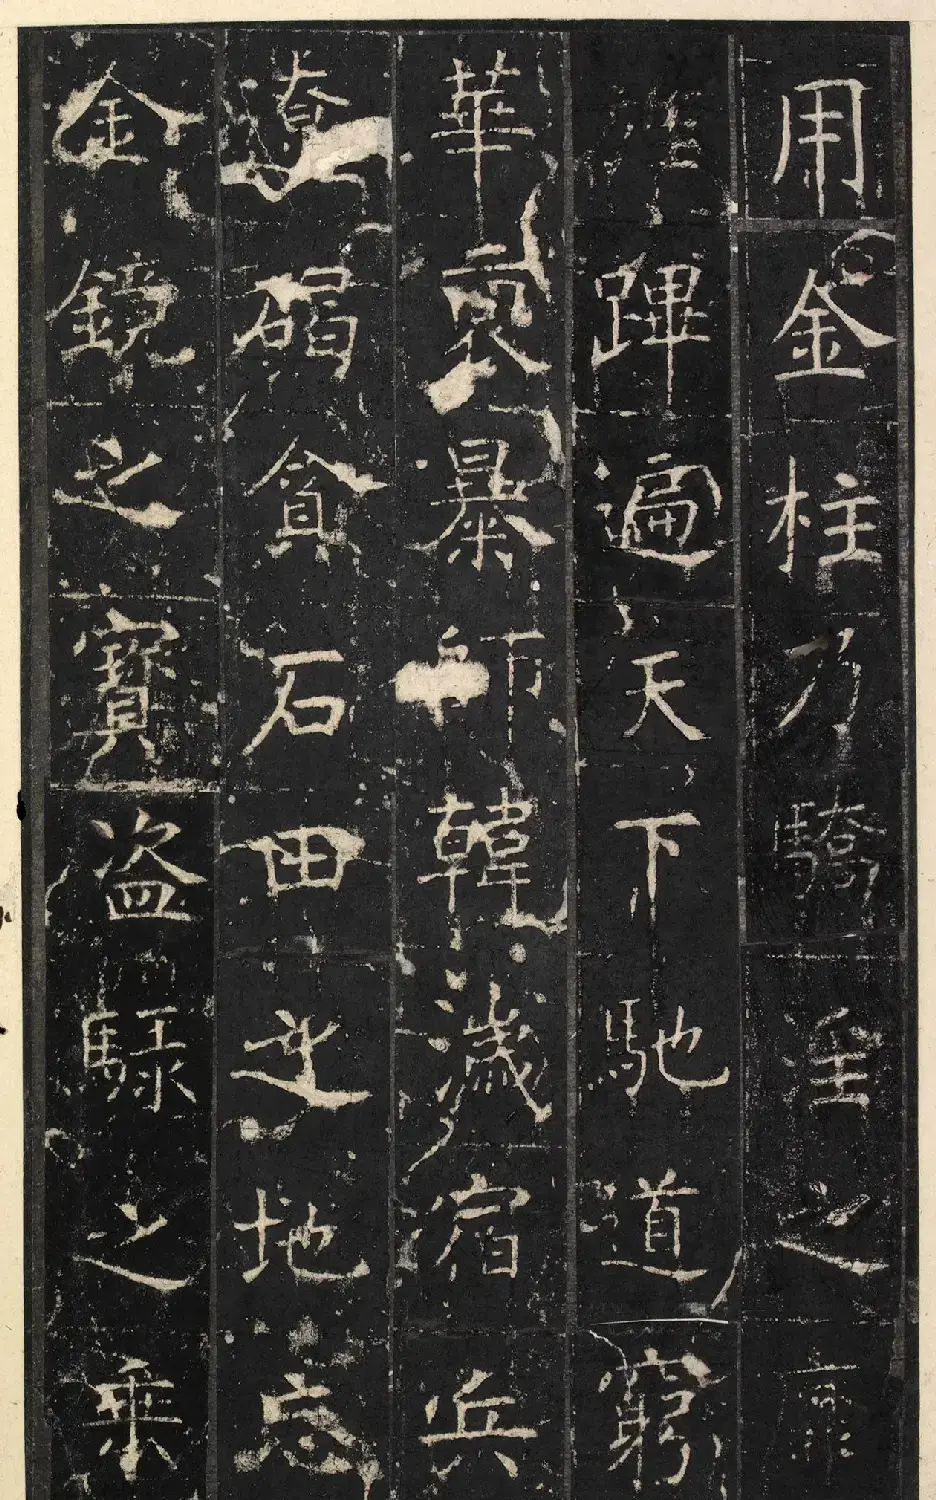 用金柱乃驕皇之
蹕遍天下馳道窮
華暴師韓濊宿兵
遼碣貪石田之地忘
金鏡之寶盜騄之乘